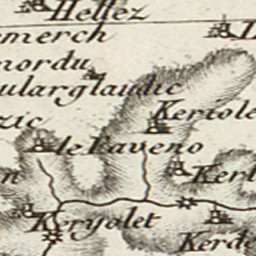 Hellez
merch
nordu
ularglaudic
Kertole
zic
le Laveno
Kerl
n
Keryolet
Kerde